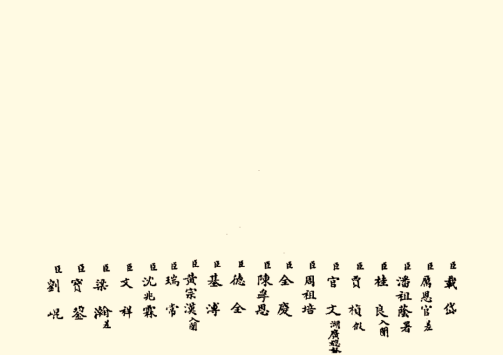 臣戴岱
臣厲恩官差
臣潘祖蔭署
臣桂良入闈
臣賈楨假
臣官文湖廣總督
臣周祖培
臣全慶
臣陳孚恩
臣德全
臣基溥
臣黃宗漢入闈
臣瑞常
臣沈兆霖
臣文祥
臣梁瀚差
臣寶鋆
臣劉崐